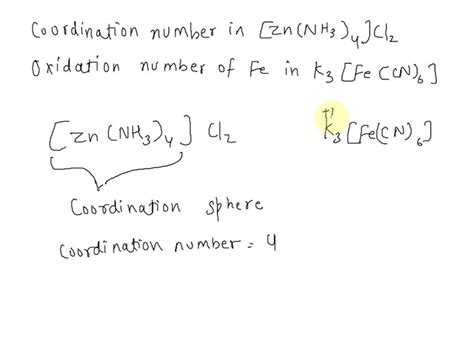 Coordination number in [Zn(NH3)4]Cl2
Oxidation number of Fe in K3[Fe(CN)6]
[Zn(NH3)4] Cl2
+1
K3[Fe(CN)6]
Coordination sphere
Coordination number = 4